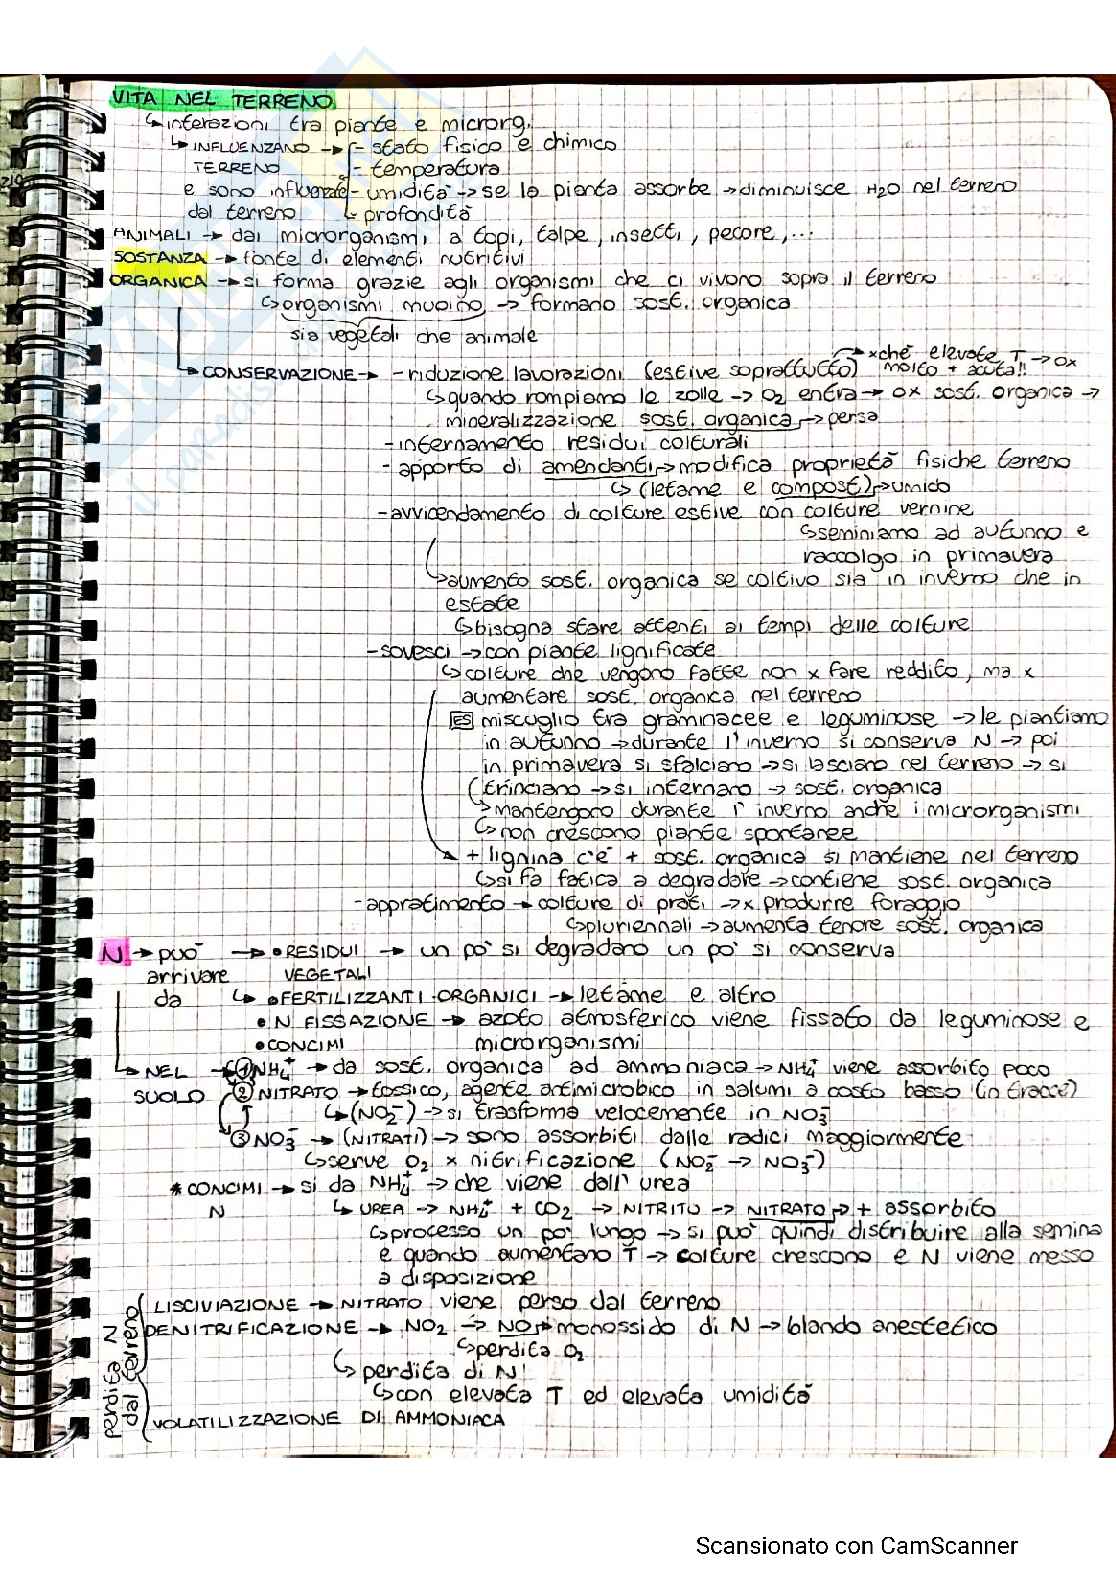 VITA NEL TERRENO
↳ interazioni tra piante e microrg.
↳ INFLUENZANO → - stato fisico e chimico
TERRENO - temperatura
e sono influenzate - umidità → se la pianta assorbe → diminuisce H2O nel terreno
dal terreno ↳ profondità
ANIMALI → dai microrganismi a topi, talpe, insetti, pecore,...
SOSTANZA → fonte di elementi nutritivi
ORGANICA → si forma grazie agli organismi che ci vivono sopra il terreno
↳ organismi muoino → formano sost. organica
sia vegetali che animale
↳ CONSERVAZIONE → - riduzione lavorazioni (estive soprattutto) → xchè elevate T → ox
molto + acuta!!
↳ quando rompiamo le zolle → O2 entra → ox sost. organica →
mineralizzazione sost. organica → persa
- internamento residui colturali
- apporto di amendanti → modifica proprietà fisiche terreno
↳ (letame e compost) → umido
- avvicendamento di colture estive con colture vernine
↳ seminiamo ad autunno e
raccolgo in primavera
↳ aumento sost. organica se coltivo sia in inverno che in
estate
↳ bisogna stare attenti ai tempi delle colture
- sovesci → con piante lignificate
↳ colture che vengono fatte non x fare reddito, ma x
aumentare sost. organica nel terreno
ES miscuglio tra graminacee e leguminose → le piantiamo
in autunno → durante l'inverno si conserva N → poi
in primavera si sfalciano → si lasciano nel terreno → si
trinciano → si internano → sost. organica
↳ mantengono durante l'inverno anche i microrganismi
↳ non crescono piante spontanee
+ lignina c'è + sost. organica si mantiene nel terreno
↳ si fa fatica a degradare → contiene sost. organica
- appratimento → colture di prati → x produrre foraggio
↳ pluriennali → aumenta tenore sost. organica
N → può → • RESIDUI → un po' si degradano un po' si conserva
arrivare VEGETALI
da ↳ • FERTILIZZANTI ORGANICI → letame e altro
• N FISSAZIONE → azoto atmosferico viene fissato da leguminose e
• CONCIMI microrganismi
↳ NEL → ① NH4+ → da sost. organica ad ammoniaca → NH4+ viene assorbito poco
SUOLO ② NITRATO → tossico, agente antimicrobico in salumi a costo basso (in tracce)
↳ (NO2-) → si trasforma velocemente in NO3-
③ NO3- → (NITRATI) → sono assorbiti dalle radici maggiormente
↳ serve O2 x nitrificazione (NO2- → NO3-)
* CONCIMI → si da NH4+ → che viene dall'urea
N ↳ UREA → NH4+ + CO2 → NITRITO → NITRATO → + assorbito
↳ processo un po' lungo → si può quindi distribuire alla semina
e quando aumentano T → colture crescono e N viene messo
a disposizione
perdite N del terreno
LISCIVIAZIONE → NITRATO viene perso dal terreno
DENITRIFICAZIONE → NO2 → NO → monossido di N → blando anestetico
↳ perdita O2
↳ perdita di N!
↳ con elevata T ed elevata umidità
VOLATILIZZAZIONE DI AMMONIACA
Scansionato con CamScanner